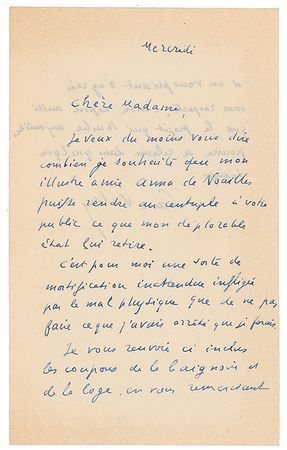 Mercredi
Chère Madame,
Je veux du moins vous dire
combien je souhaite que mon
illustre amie Anna de Noailles
puisse rendre au centuple à votre
public ce que mon déplorable
état lui retire.
C'est pour moi une sorte de
mortification inattendue infligée
par le mal physique que de ne pas
faire ce que j'avais arrêté que je ferais.
Je vous renvoie ci inclus
les coupons de la baignoire et
de la loge, en vous remerciant